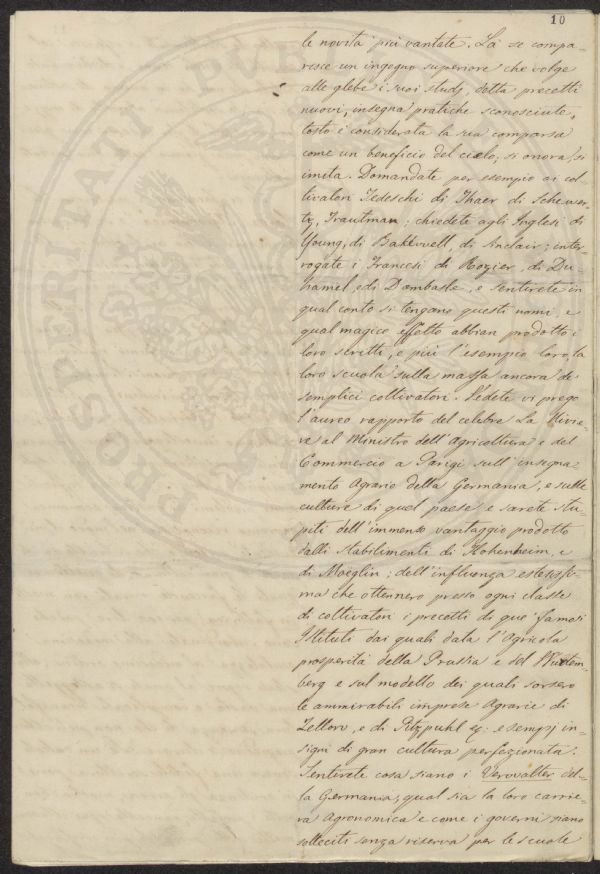 10
le novità più vantate. Là se compa-
risce un ingegno superiore che volge
alle glebe i suoi studj, detta precetti
nuovi, insegna pratiche sconosciute,
tosto è considerata la sua comparsa
come un beneficio del cielo; si onora, si
imita. Domandate per esempio ai col
tivatori Tedeschi di Thaer di Schewer-
tz, Trautman; chiedete agli Inglesi di
Young, di Bakevvell, di Sinclair; inter-
rogate i Francesi di Rozier, di Du
hamel, e di Dombasle, e sentirete in
qual conto si tengano questi nomi, e
qual magico effetto abbian prodotto i
loro scritti, e più l'esempio loro, la
loro scuola sulla massa ancora de'
semplici coltivatori. Vedete vi prego
l'aureo rapporto del celebre La Rivie-
re al Ministro dell'Agricoltura e del
Commercio a Parigi sull'insegna
mento Agrario della Germania, e sulle
culture di quel paese e sarete stu-
piti dell'immenso vantaggio prodotto
dalli stabilimenti di Hohenheim, e
di Moëglin; dell'influenza estesissi-
ma che ottennero presso ogni classe
di coltivatori i precetti di que' famosi
Istituti dai quali data l'Agricola
prosperità della Prussia e del Wurtem-
berg e sul modello dei quali sorsero
le ammirabili imprese Agrarie di
Zellow, e di Ritzpuhl esempj in-
signi di gran cultura perfezionata.
Sentirete cosa siano i Vervvalter del-
la Germania, qual sia la loro carrie-
ra Agronomica e come i governi siano
solleciti senza riserva per le scuole
PROSPERITATI PVB